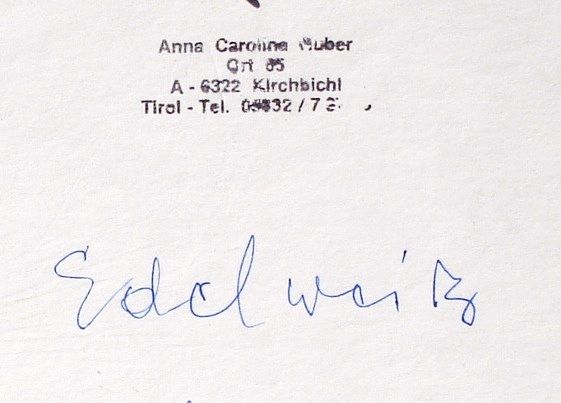 Anna Carolina Huber
Ort 85
A - 6322 Kirchbichl
Tirol - Tel.
Edelweiß